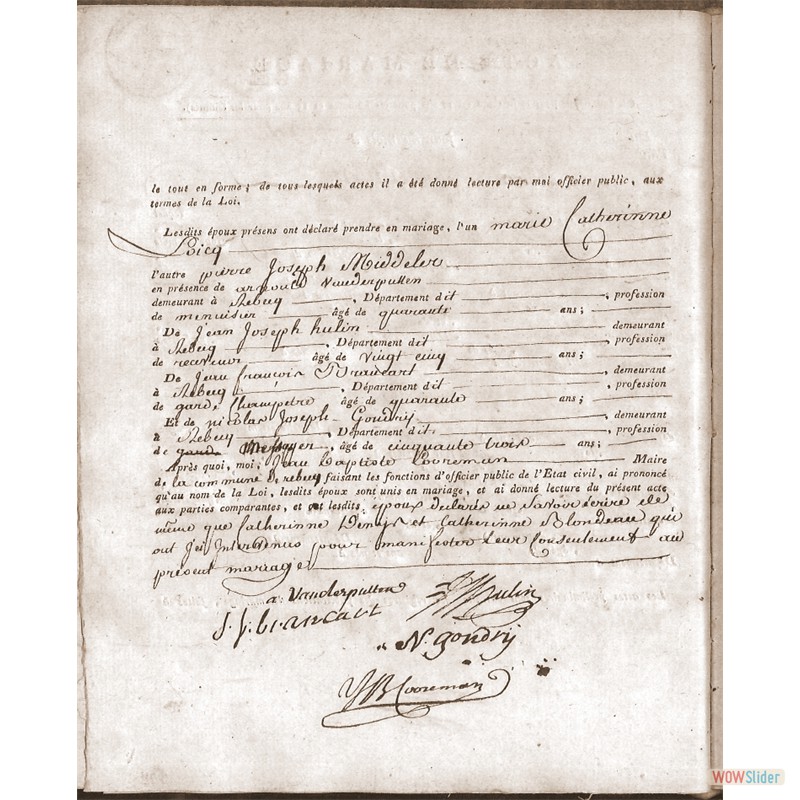 le tout en forme; de tous lesquels actes il a été donné lecture par moi officier public, aux
termes de la Loi.
Lesdits époux présens ont déclaré prendre en mariage, l'un marie Catherinne
Loicq
l'autre pierre Joseph Middeler
en présence de arnould Vanderputten
demeurant à Rebecq , Département dit , profession
de menuisier âgé de quarante ans;
De Jean Joseph hulin demeurant
à Rebecq , Département dit profession
de receveur âgé de vingt cinq ans;
De Jean françois Brancart , demeurant
à Rebecq , Département dit , profession
de garde Champetre âgé de quarante ans;
Et de nicolas Joseph Gondrÿ , demeurant
à Rebecq , Département dit , profession
de , âgé de cinquante trois ans;
Après quoi, moi, Jean Baptiste Cooreman Maire
de la commune de rebecq faisant les fonctions d'officier public de l'Etat civil, ai prononcé
qu'au nom de la Loi, lesdits époux sont unis en mariage, et ai donné lecture du présent acte
aux parties comparantes, et lesdits époux declarés ne savoir ecrire de
même que Catherinne Denys et Catherinne Blondeau qui
ont Intervenus pour manifester leur Consentement au
présent mariage
a: Vanderputten
Hulin
J. f. brancart
N. gondrÿ
JB Cooreman
WOWSlider